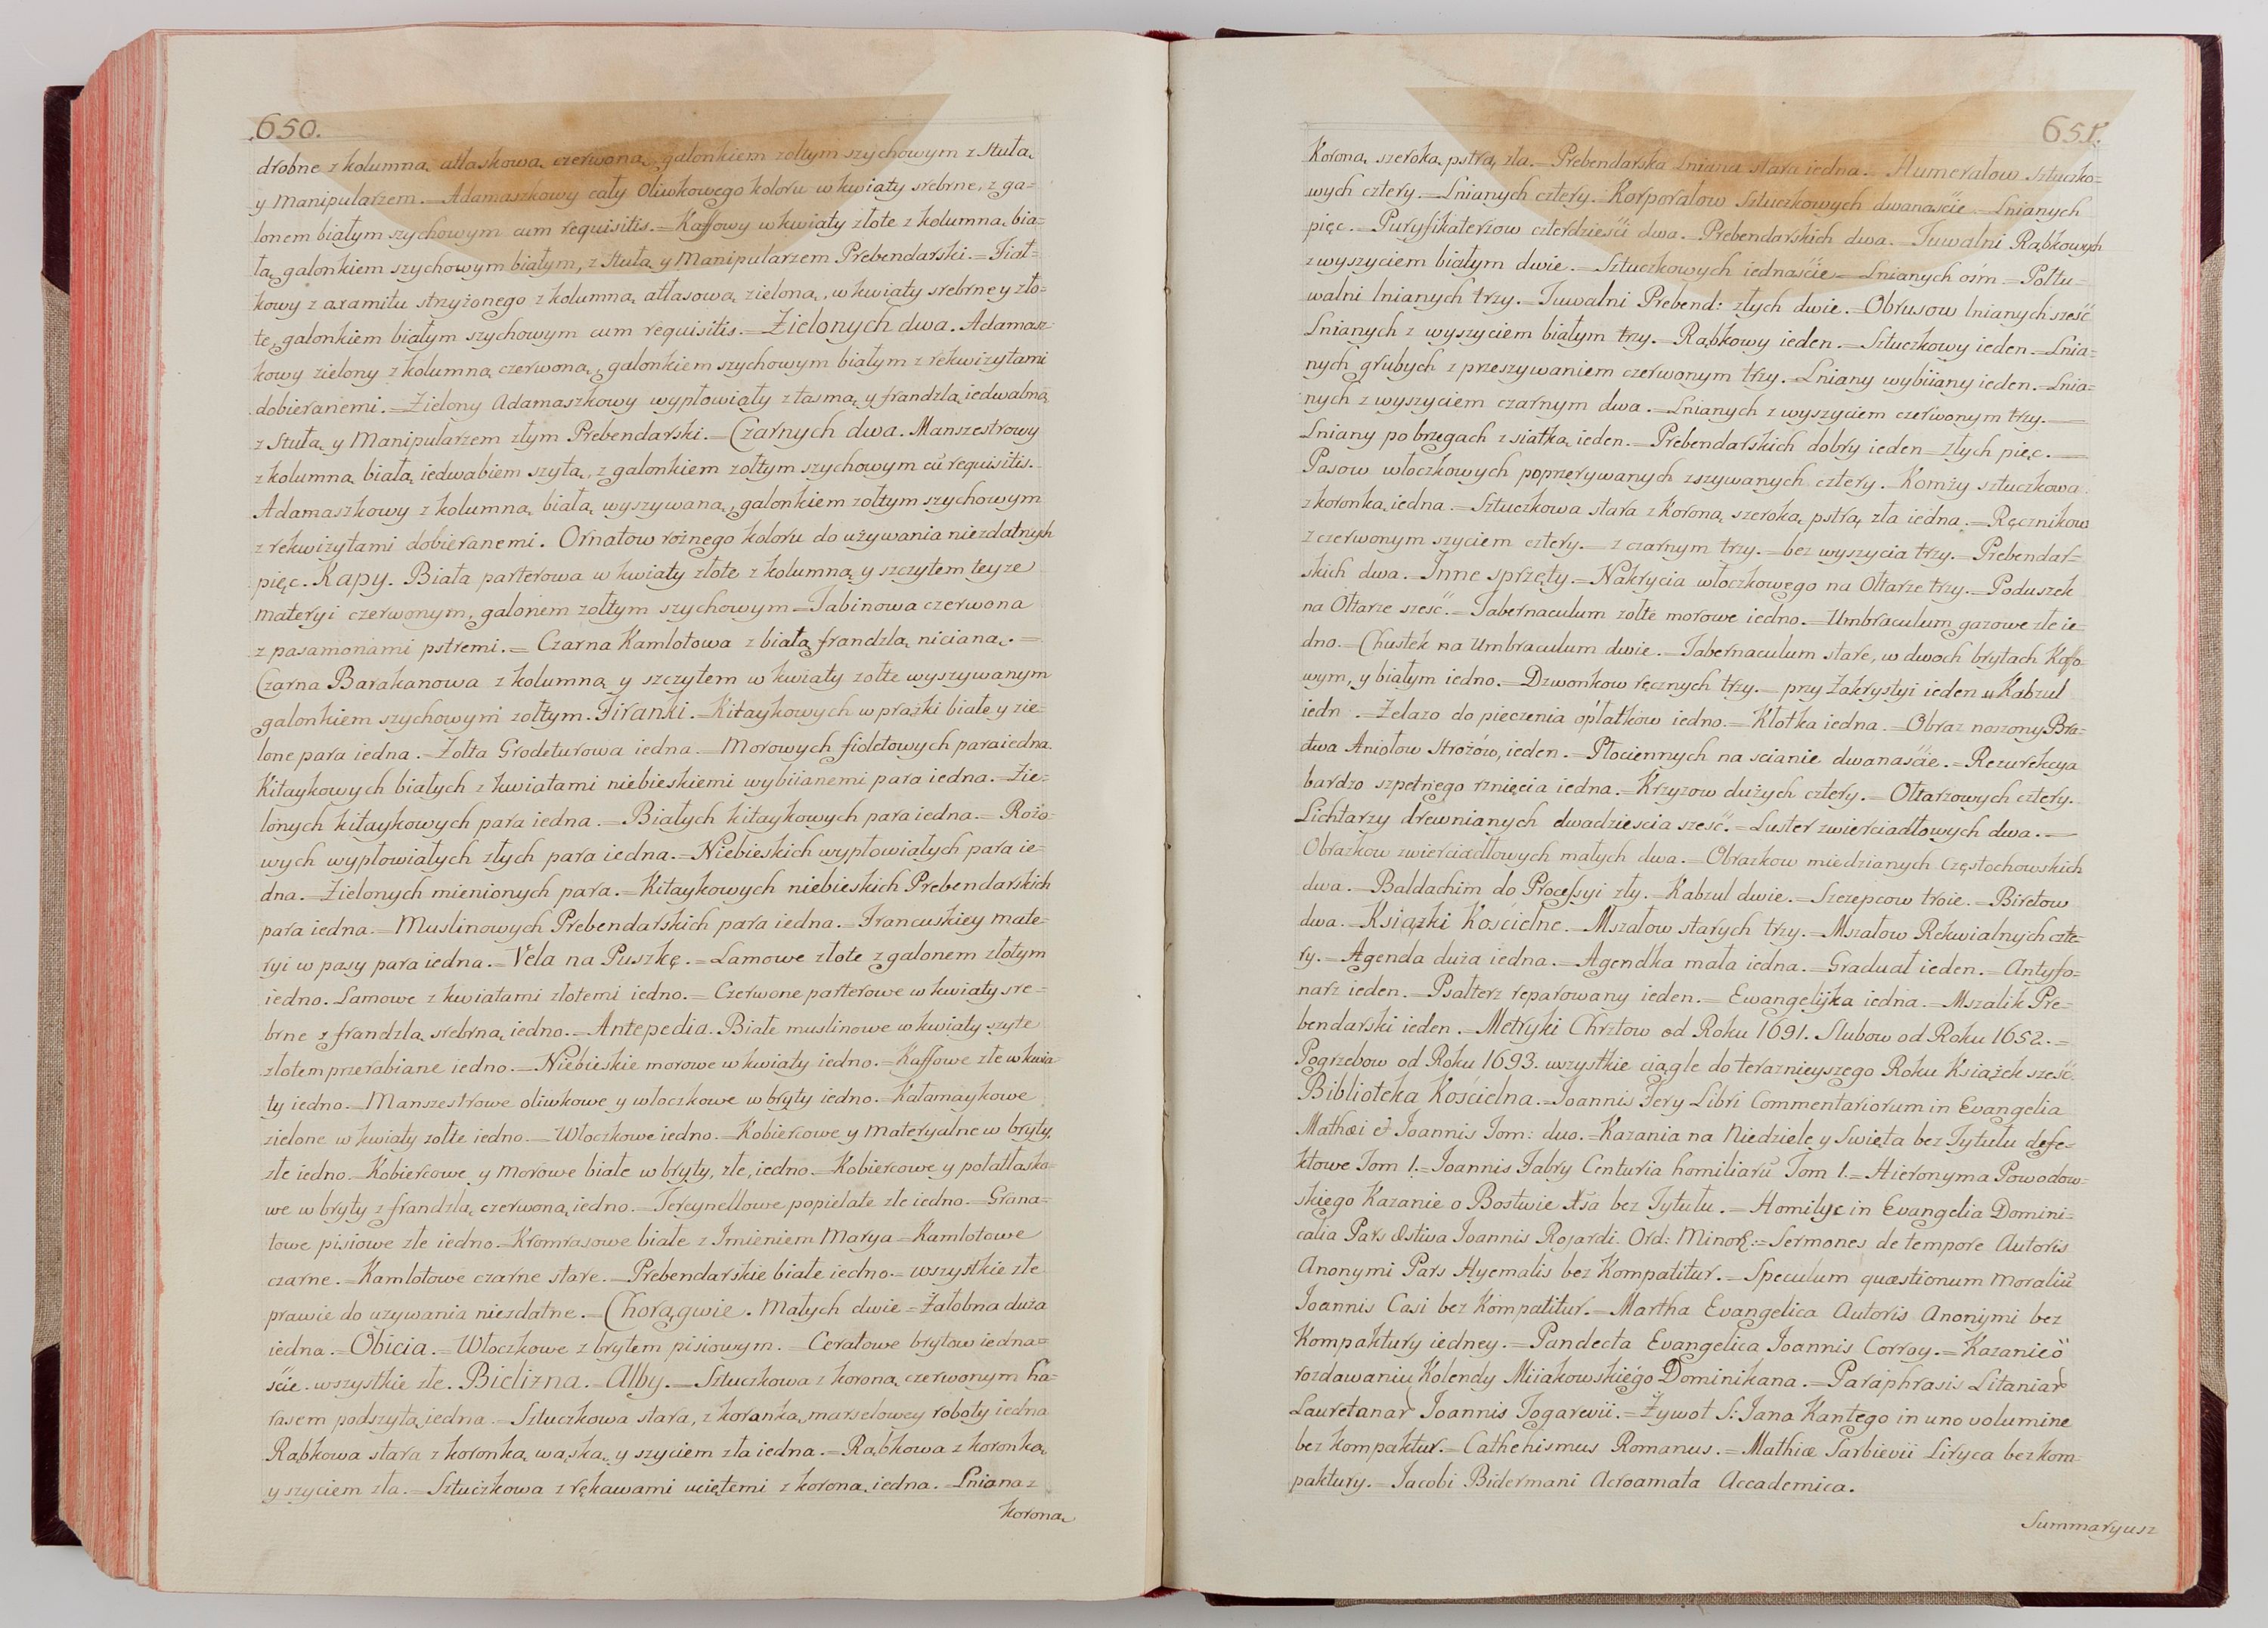 650.
drobne z kolumną atłaskową czerwoną, galonkiem zołtym szychowym z Stułą,
y Manipularzem. = Adamaszkowy cały Oliwkowego koloru w kwiaty srebrne, z ga=
lonem białym szychowym cum requisitis. = Kaffowy w kwiaty złote z kolumną bia=
łą, galonkiem szychowym białym, z Stułą y Manipularzem Prebendarski. = Fioł=
kowy z axamitu strzyżonego z kolumną atłasową zieloną, w kwiaty srebrne y zło=
te, galonkiem białym szychowym cum requisitis. = Zielonych dwa. Adamasz=
kowy zielony z kolumną czerwoną, galonkiem szychowym białym z rekwizytami
dobieranemi. = Zielony Adamaszkowy wypłowiały z tasmą y frandzlą iedwabną
z Stułą y Manipularzem złym Prebendarski. = Czarnych dwa. Manszestrowy
z kolumną białą iedwabiem szytą, z galonkiem zołtym szychowym cū requisitis. =
Adamaszkowy z kolumną białą wyszywaną, galonkiem zołtym szychowym
z rekwizytami dobieranemi. Ornatow rożnego koloru do używania niezdatnych
pięc. Kapy. Biała parterowa w kwiaty złote z kolumną y szczytem teyże
materyi czerwonym, galonem zołtym szychowym = Tabinowa czerwona
z pasamonami pstremi. = Czarna Kamlotowa z białą frandzlą nicianą. =
Czarna Barakanowa z kolumną y szczytem w kwiaty zołte wyszywanym
galonkiem szychowym zołtym. Firanki. = Kitaykowych w prążki białe y zie=
lone para iedna. = Zołta Grodeturowa iedna. = Morowych fioletowych para iedna.
Kitaykowych białych z kwiatami niebieskiemi wybiianemi para iedna. = Zie=
lonych kitaykowych para iedna. = Białych kitaykowych para iedna. = Rożo=
wych wypłowiałych złych para iedna. = Niebieskich wypłowiałych para ie=
dna. = Zielonych mienionych para. = Kitaykowych niebieskich Prebendarskich
para iedna. = Muslinowych Prebendarskich para iedna. = Francuskiey mate=
ryi w pasy para iedna. = Vela na Puszkę. = Lamowe złote z galonem złotym
iedno. Lamowe z kwiatami złotemi iedno. = Czerwone parterowe w kwiaty sre=
brne z frandzlą srebrną iedno. = Antepedia. Białe muslinowe w kwiaty szyte
złotem przerabiane iedno. = Niebieskie morowe w kwiaty iedno. = Kaffowe złe w kwia=
ty iedno. = Manszestrowe oliwkowe y włoczkowe w bryty iedno. = Kałamaykowe
zielone w kwiaty zołte iedno. = Włoczkowe iedno. = Kobiercowe y Materyalne w bryty,
złe iedno. Kobiercowe y Morowe białe w bryty, złe, iedno. = Kobiercowe y połatłasko=
we w bryty z frandzlą czerwoną iedno. = Tereynellowe popielate złe iedno. = Grana=
towe pisiowe złe iedno. = Kromrasowe białe z Imieniem Marya = Kamlotowe
czarne. = Kamlotowe czarne stare. = Prebendarskie białe iedno. = wszystkie złe
prawie do używania niezdatne. = Chorągwie. Małych dwie = Żałobna duża
iedna. = Obicia. = Włoczkowe z brytem pisiowym. = Ceratowe brytow iedna=
ście. wszystkie złe. Bielizna. = Alby. = Sztuczkowa z koroną czerwonym ha=
rasem podszytą iedna. = Sztuczkowa stara, z koronką marselowey roboty iedna
Rąbkowa stara z koronką wąską y szyciem zła iedna. = Rąbkowa z koronką
y szyciem zła. = Sztuczkowa z rękawami uciętemi z koroną iedna. = Lniana z
koroną
651.
Koroną szeroką pstrą zła. = Prebendarska Lniana stara iedna. = Humerałow Sztuczko=
wych cztery. = Lnianych cztery. Korporałow Sztuczkowych dwanaście. = Lnianych
pięc. = Puryfikaterzow czterdzieści dwa. = Prebendarskich dwa. = Tuwalni Rąbkowych
z wyszyciem białym dwie. = Sztuczkowych iednaście = Lnianych ośm = Połtu=
walni lnianych trzy. = Tuwalni Prebend: złych dwie. = Obrusow lnianych sześć
Lnianych z wyszyciem białym trzy. = Rąbkowy ieden. = Sztuczkowy ieden. = Lnia=
nych grubych z przeszywaniem czerwonym trzy. = Lniany wybiiany ieden. = Lnia=
nych z wyszyciem czarnym dwa. = Lnianych z wyszyciem czerwonym trzy. =
Lniany po brzegach z siatką ieden. = Prebendarskich dobry ieden = złych pięc. =
Pasow włoczkowych poprzerywanych zszywanych cztery. Komży sztuczkowa
z koronką iedna. = Sztuczkowa stara z Koroną szeroką pstrą zła iedna. = Ręcznikow
z czerwonym szyciem cztery. = z czarnym trzy. = bez wyszycia trzy. = Prebendar=
skich dwa. = Inne sprzęty. = Nakrycia włoczkowego na Ołtarze trzy. = Poduszek
na Ołtarze sześć. = Tabernaculum zołte morowe iedno. = Umbraculum gazowe złe ie=
dno. = Chustek na Umbraculum dwie. = Tabernaculum stare, w dwoch brytach Kafo=
wym, y białym iedno. = Dzwonkow ręcznych trzy. = przy Zakrystyi ieden u Kabzul
iedn . = Zelazo do pieczenia opłatkow iedno. = Kłotka iedna. = Obraz noszony Bra=
ctwa Aniołow Strożów, ieden. = Płociennych na scianie dwanaście. = Rezurekcya
bardzo szpetnego rznięcia iedna. = Krzyzow dużych cztery. = Ołtarzowych cztery.
Lichtarzy drewnianych dwadziescia sześć. = Luster zwierciadłowych dwa. =
Obrazkow zwierciadłowych małych dwa. = Obrazkow miedzianych Częstochowskich
dwa. = Baldachim do Processyi zły. = Kabzul dwie. = Szczepcow troie. = Biretow
dwa. = Książki Kościelne. = Mszałow starych trzy. = Mszałow Rekwialnych czte=
ry. = Agenda duża iedna. = Agendka mała iedna. = Graduał ieden. = Antyfo=
narz ieden. = Psałterz reparowany ieden. = Ewangelijka iedna. = Mszalik Pre=
bendarski ieden. = Metryki Chrztow od Roku 1691. Slubow od Roku 1652. =
Pogrzebow od Roku 1693. wszystkie ciągle do teraznieyszego Roku Książek sześć.
Biblioteka Kościelna. = Joannis Fery Libri Commentariorum in Evangelia
Mathæi & Joannis Tom: duo. = Kazania na Niedziele y Swięta bez Tytułu defe=
ktowe Tom 1. = Joannis Fabry Centuria homiliarū Tom 1. = Hieronyma Powodow=
skiego Kazanie o Bostwie Xsa bez Tytułu. = Homilye in Evangelia Domini=
calia Pars Æstiva Joannis Rojardi. Ord: Minor: = Sermones de tempore Autoris
Anonymi Pars Hyemalis bez Kompatitur. = Speculum quæstionum Moraliū
Joannis Casi bez Kompatitur. = Martha Evangelica Autoris Anonymi bez
Kompaktury iedney. = Pandecta Evangelica Joannis Corroy. = Kazanie o
rozdawaniu Kolendy Miiakowskiégo Dominikana. = Paraphrasis Litaniar
Lauretanar Joannis Togarevii. = Żywot S: Jana Kantego in uno volumine
bez kompaktur. = Cathehismus Romanus. = Mathiæ Sarbievii Liryca bez kom=
paktury. = Jacobi Bidermani Acroamata Accademica.
Summaryusz